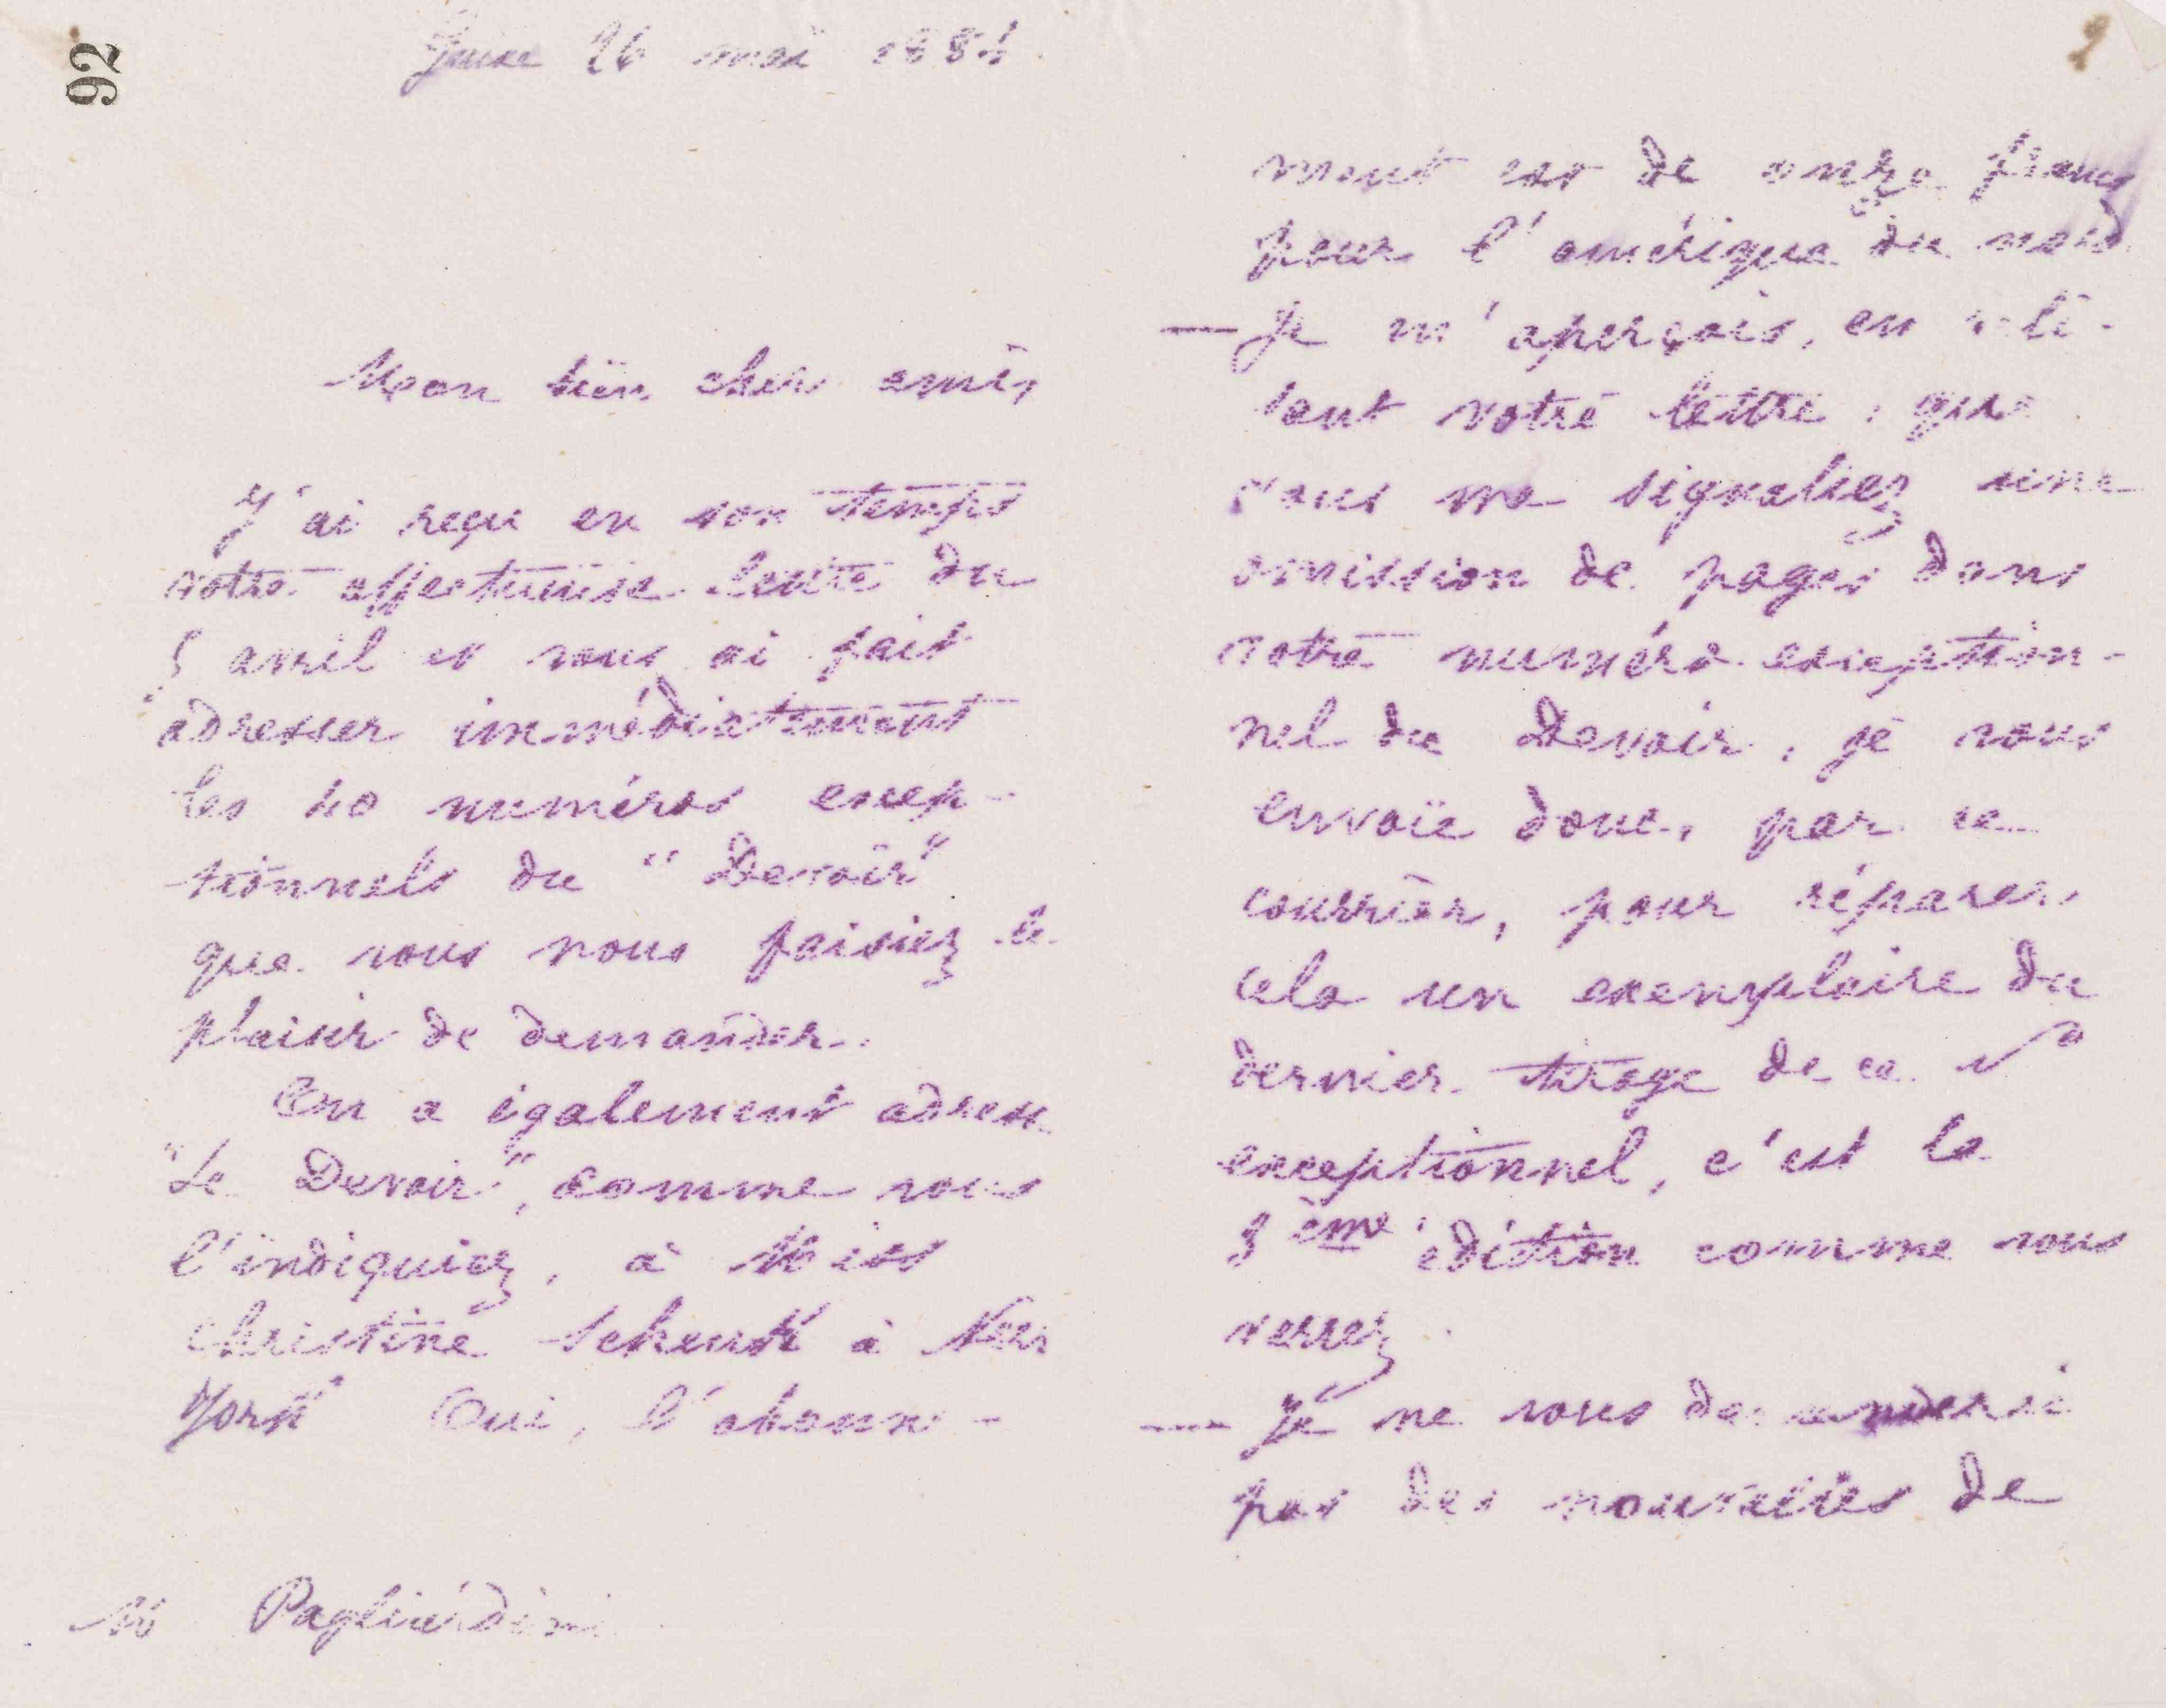 92
Guise 26 mai 1884
Mon bien cher ami,
J'ai reçu en son temps
votre affectueuse lettre du
5 avril et vous ai fait
adresser immédiatement
les 40 numéros excep-
tionnels du "Devoir"
que vous nous faisiez le
plaisir de demander.
On a également adressé
"Le Devoir", comme vous
l'indiquiez, à Miss
Christine à New
York Oui, l'abonne-
M Pagliardini
ment est de onze francs
pour l'amérique du nord.
— Je m'aperçois, en reli-
sant votre lettre, que
vous me signaliez une
omission de pages dans
votre numéro exception-
nel du Devoir, je vous
envoie donc, par ce
courrier, pour réparer
cela un exemplaire du
dernier tirage de ce No
exceptionnel, c'est la
3ème édition comme vous
verrez.
— Je ne vous demanderai
pas des nouvelles de